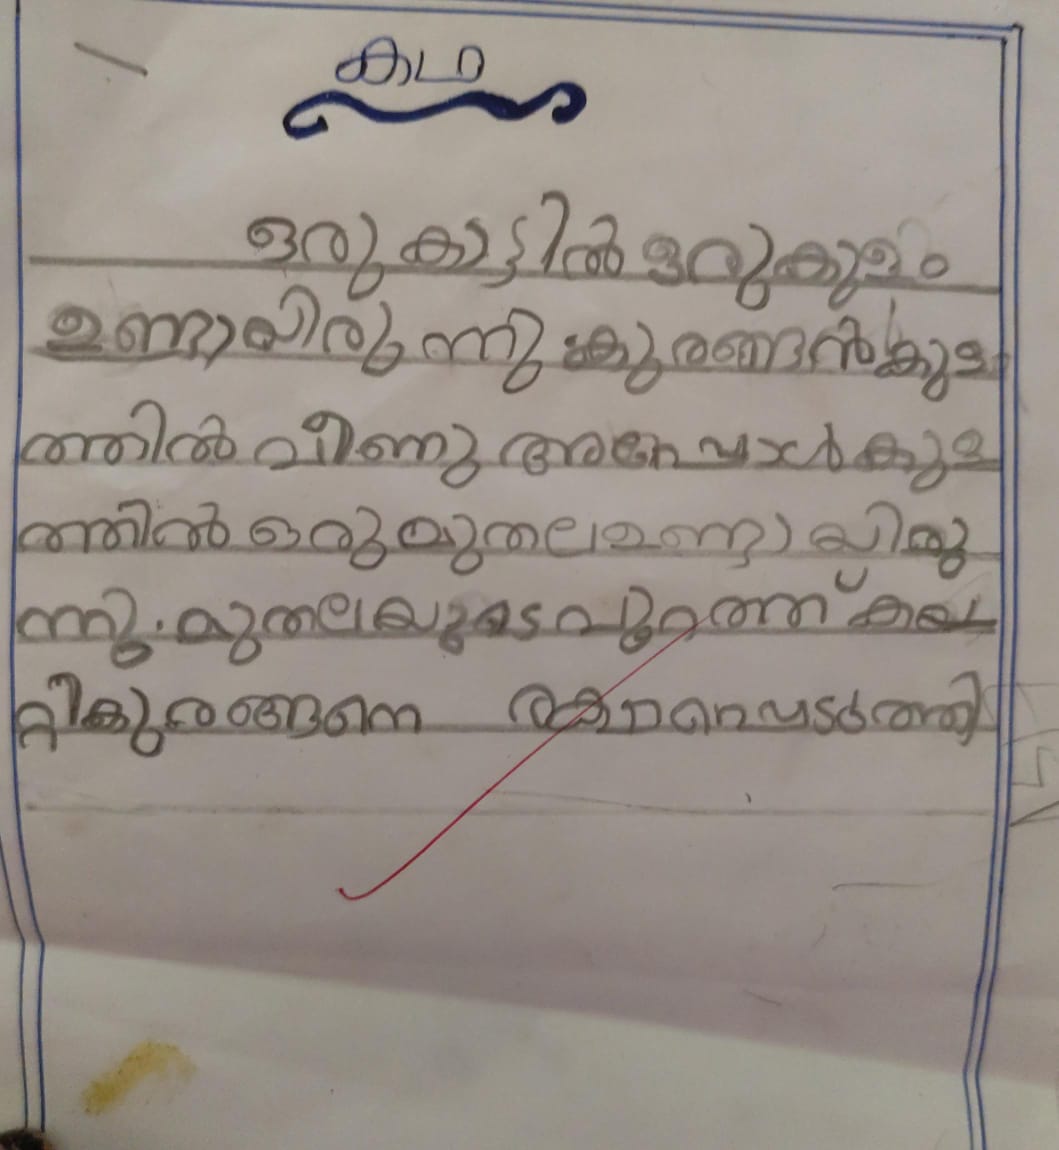 കഥ
ഒരു കാട്ടിൽ ഒരു കുളം
ഉണ്ടായിരുന്നു കുരങ്ങൻ കുള
ത്തിൽ വീണു അപ്പോൾ കുള
ത്തിൽ ഒരു മുതല ഉണ്ടായിരു
ന്നു. മുതലയുടെ പുറത്ത് കയ
റ്റി കുരങ്ങനെ രക്ഷപെടുത്തി